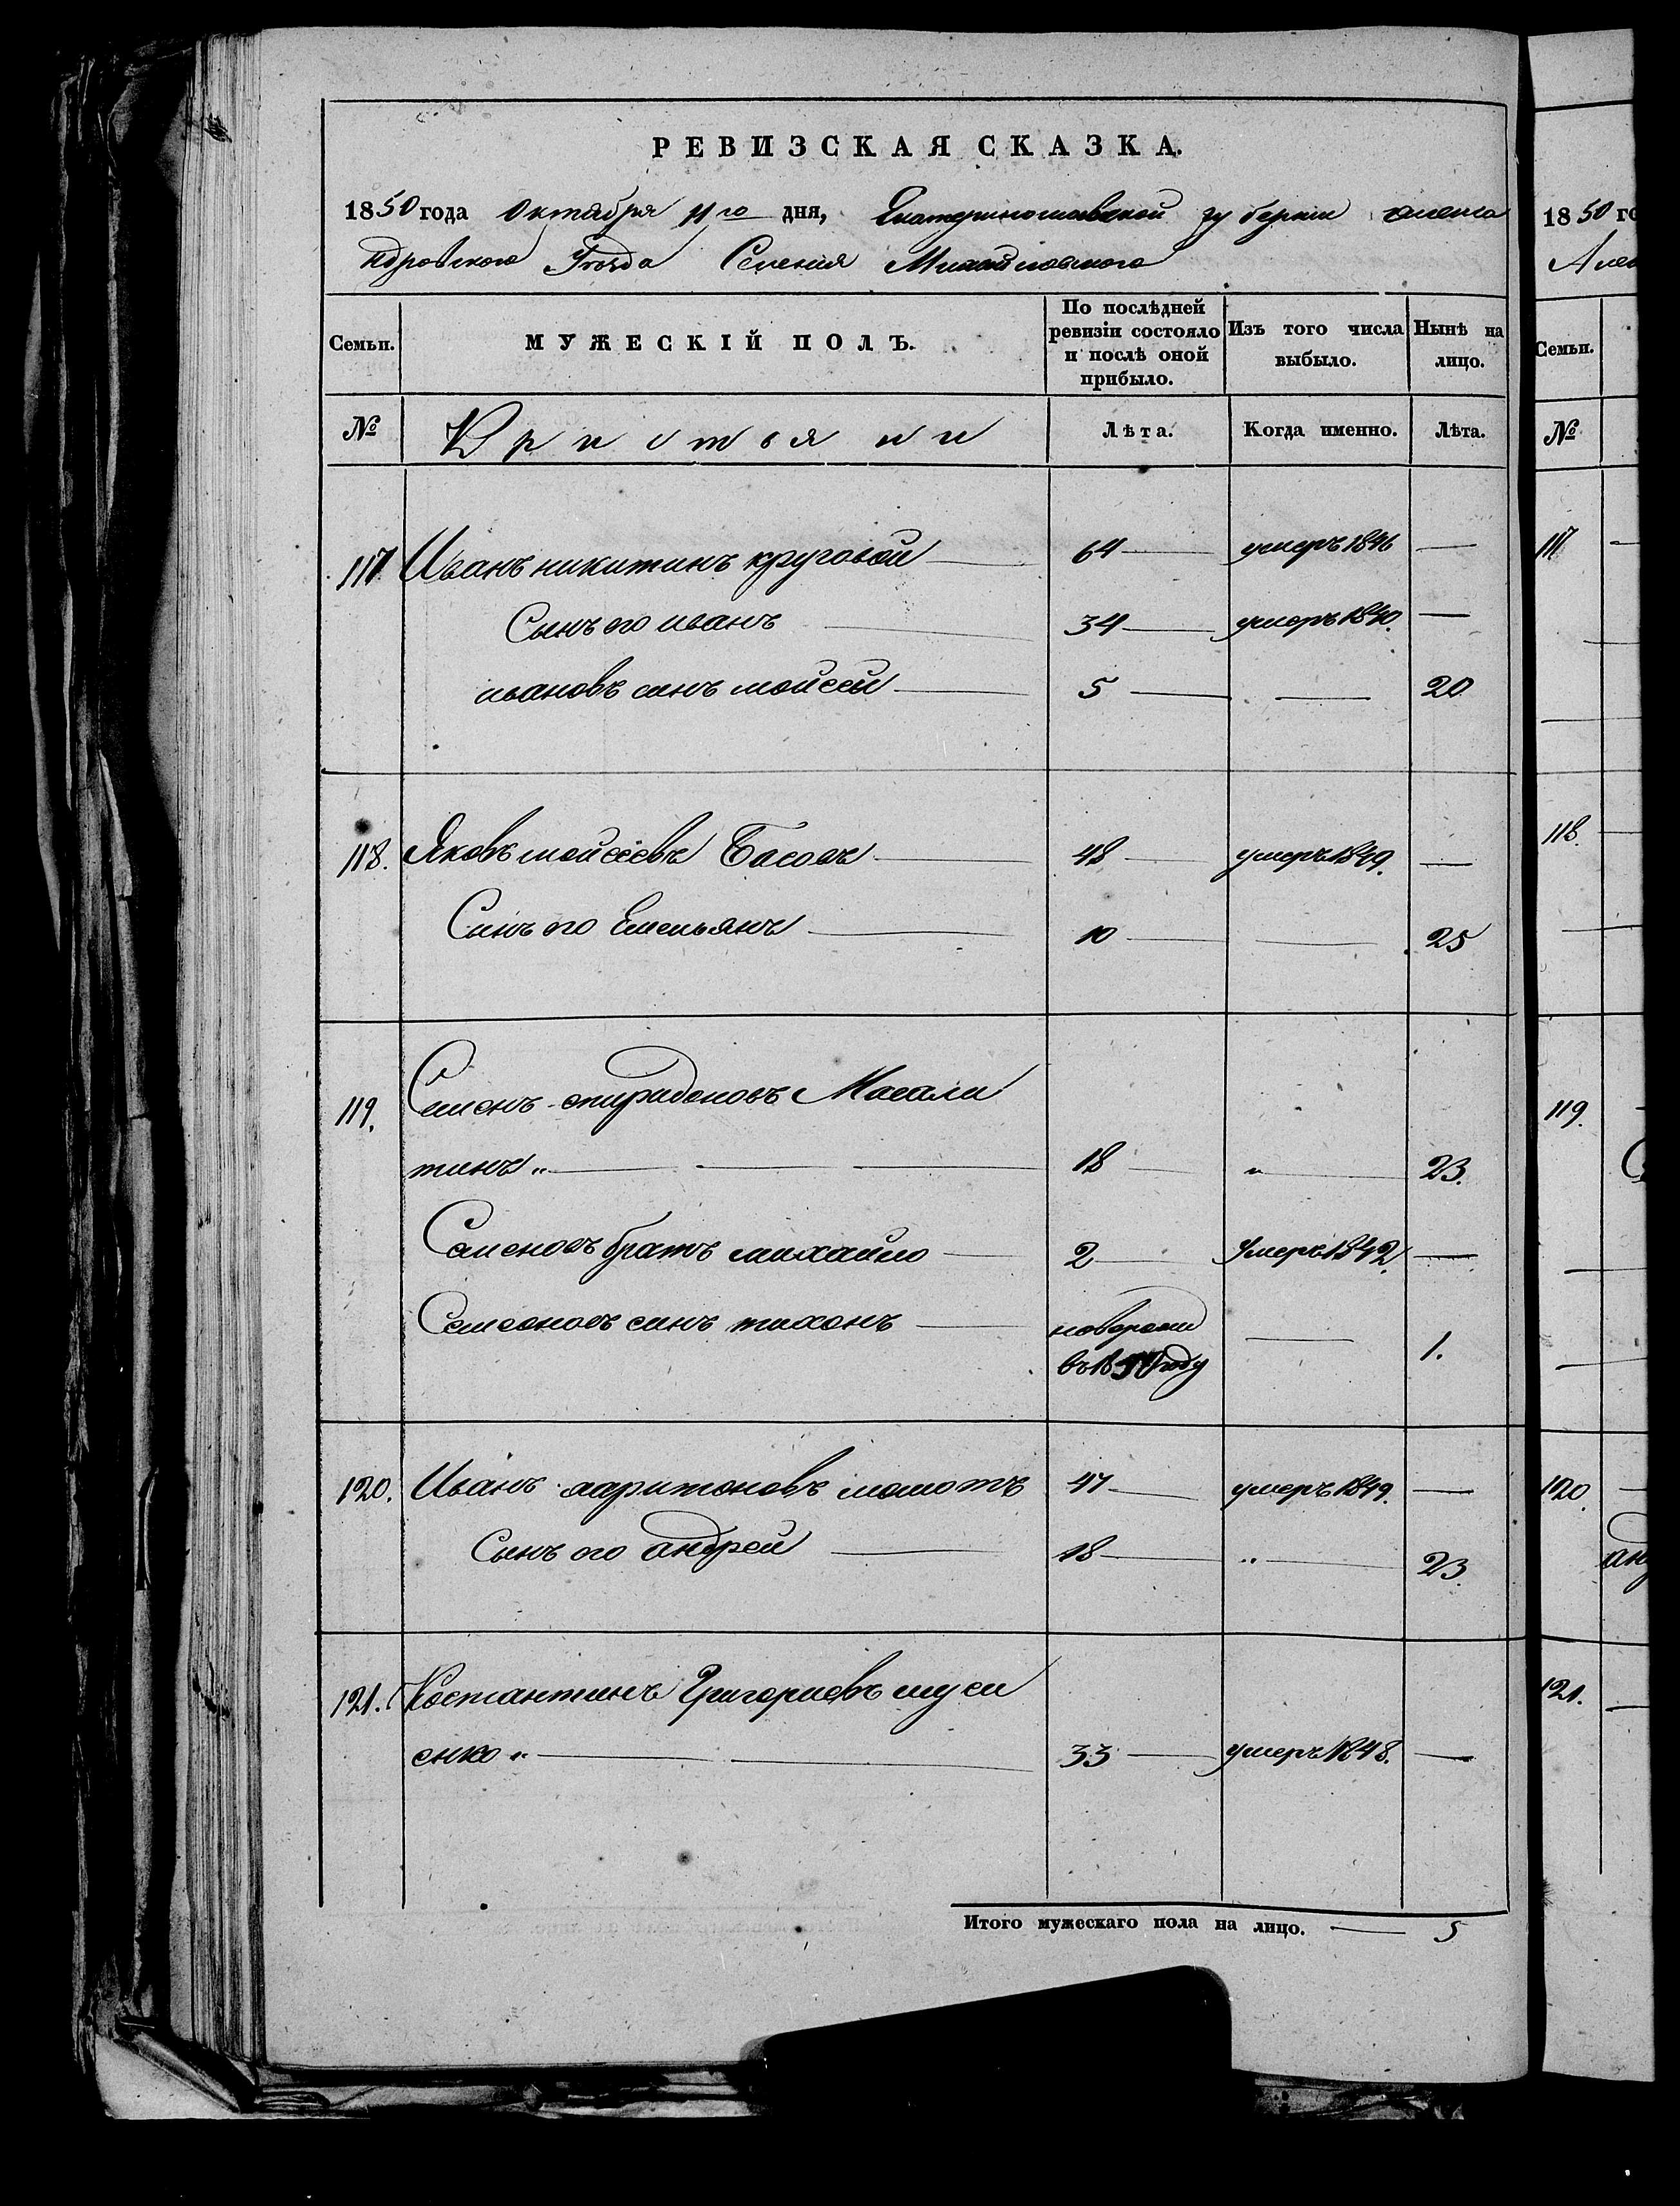 РЕВИЗСКАЯ СКАЗКА.
1850 года Октября 11го дня, Екатеринославской губернии алекса
ндровского Уезда Селения Михайловского
Семьи. МУЖЕСКІЙ ПОЛЪ. По послѣдней ревизіи состояло и послѣ оной прибыло. Изъ того числа выбыло. Нынѣ на лицо.
№ Кристьяни Лѣта. Когда именно. Лѣта.
117 Иванъ никитинъ круговой 64 умеръ 1846 —
Сынъ его иванъ 34 умеръ 1840. —
ивановъ синъ мойсей 5 — 20
118. Яковъ мойсеевъ Басовъ 48 умеръ 1849. —
Синъ его Емельянъ 10 — 25
119. Семенъ спиридоновъ Масали
тинъ „ 18 „ 23.
Семеновъ братъ михайло 2 Умеръ 1842. —
Семеоновъ синъ тихонъ новорож
въ 1850 году — 1.
120. Иванъ харитоновъ момотъ 47 умеръ 1849. —
Сынъ его андрей 18 „ 23.
121. Костантинъ Григориевъ муси
енко „ 33 умеръ 1848. —
Итого мужескаго пола на лицо. — 5
1850 го
Алек
Семьи.
№
117
118.
119.
120.
анд
121.